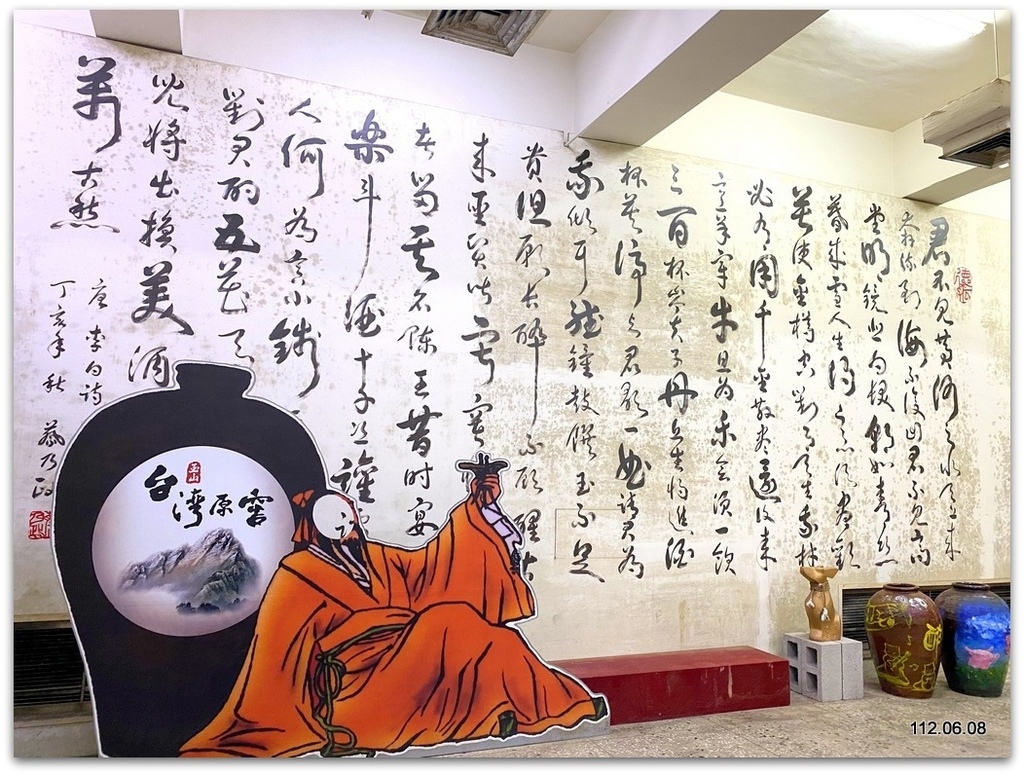 君不見黃河之水天上來
奔流到海不復回君不見高
堂明鏡悲白髮朝如青絲
暮成雪人生得意須盡歡
莫使金樽空對月天生我材
必有用千金散盡還復來
烹羊宰牛且為樂會須一飲
三百杯岑夫子丹丘生將進酒
杯莫停與君歌一曲請君為
我傾耳聽鐘鼓饌玉不足
貴但願長醉不願醒古
來聖賢皆寂寞
者留其名陳王昔時宴
樂斗酒十千恣讙
人何為言少錢
對君酌五花馬
兒將出換美酒
萬古愁
唐李白詩
丁亥年秋
玉山
台灣原窖
112.06.08